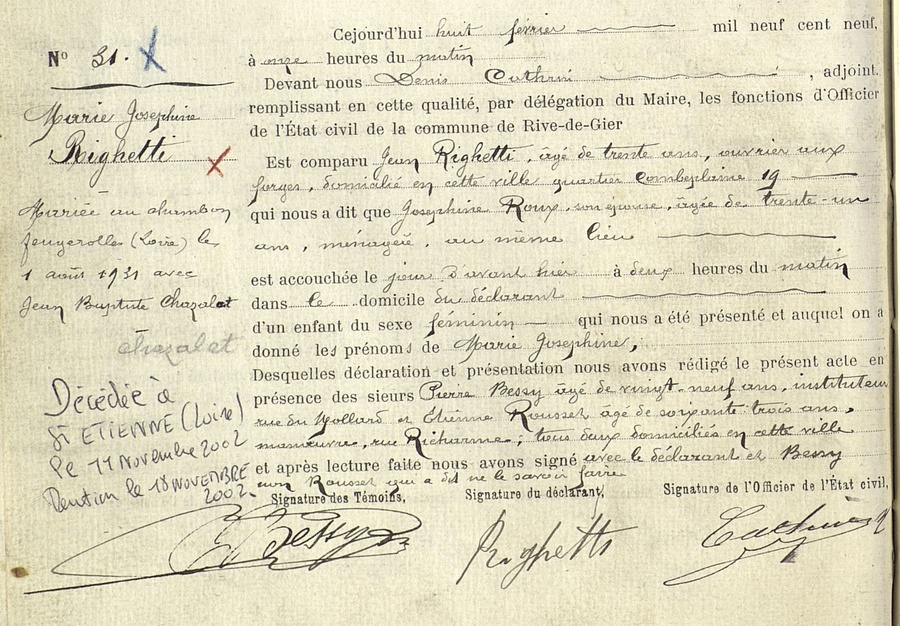 Nº 31.
Marie Josephine
Righetti
Mariée au chambon
feugerolles (Loire) le
1 août 1931 avec
Jean Baptiste Chazalat
Chazalat
Décédée à
St ETIENNE (Loire)
le 11 Novembre 2002
Mention le 18 NOVEMBRE
2002.
Cejourd'hui huit février mil neuf cent neuf,
à onze heures du matin
Devant nous Denis Cathrin, adjoint.
remplissant en cette qualité, par délégation du Maire, les fonctions d'Officier
de l'État civil de la commune de Rive-de-Gier
Est comparu Jean Righetti, âgé de trente ans, ouvrier aux
forges, domicilié en cette ville quartier Combeplaine 19
qui nous a dit que Josephine Roux, son épouse, âgée de trente-un
ans, ménagère, au même lieu
est accouchée le jour d'avant hier à deux heures du matin
dans le domicile du déclarant
d'un enfant du sexe féminin qui nous a été présenté et auquel on a
donné les prénoms de Marie Josephine,
Desquelles déclaration et présentation nous avons rédigé le présent acte en
présence des sieurs Pierre Bessy âgé de vingt-neuf ans, instituteur
rue du Mollard et Etienne Rousset âgé de soixante trois ans,
manœuvre, rue Richarme; tous deux domiciliés en cette ville
et après lecture faite nous avons signé avec le déclarant et Bessy
non Rousset qui a dit ne le savoir faire
Signature des Témoins, Signature du déclarant, Signature de l'Officier de l'État civil,
Bessy Righetti Cathrin